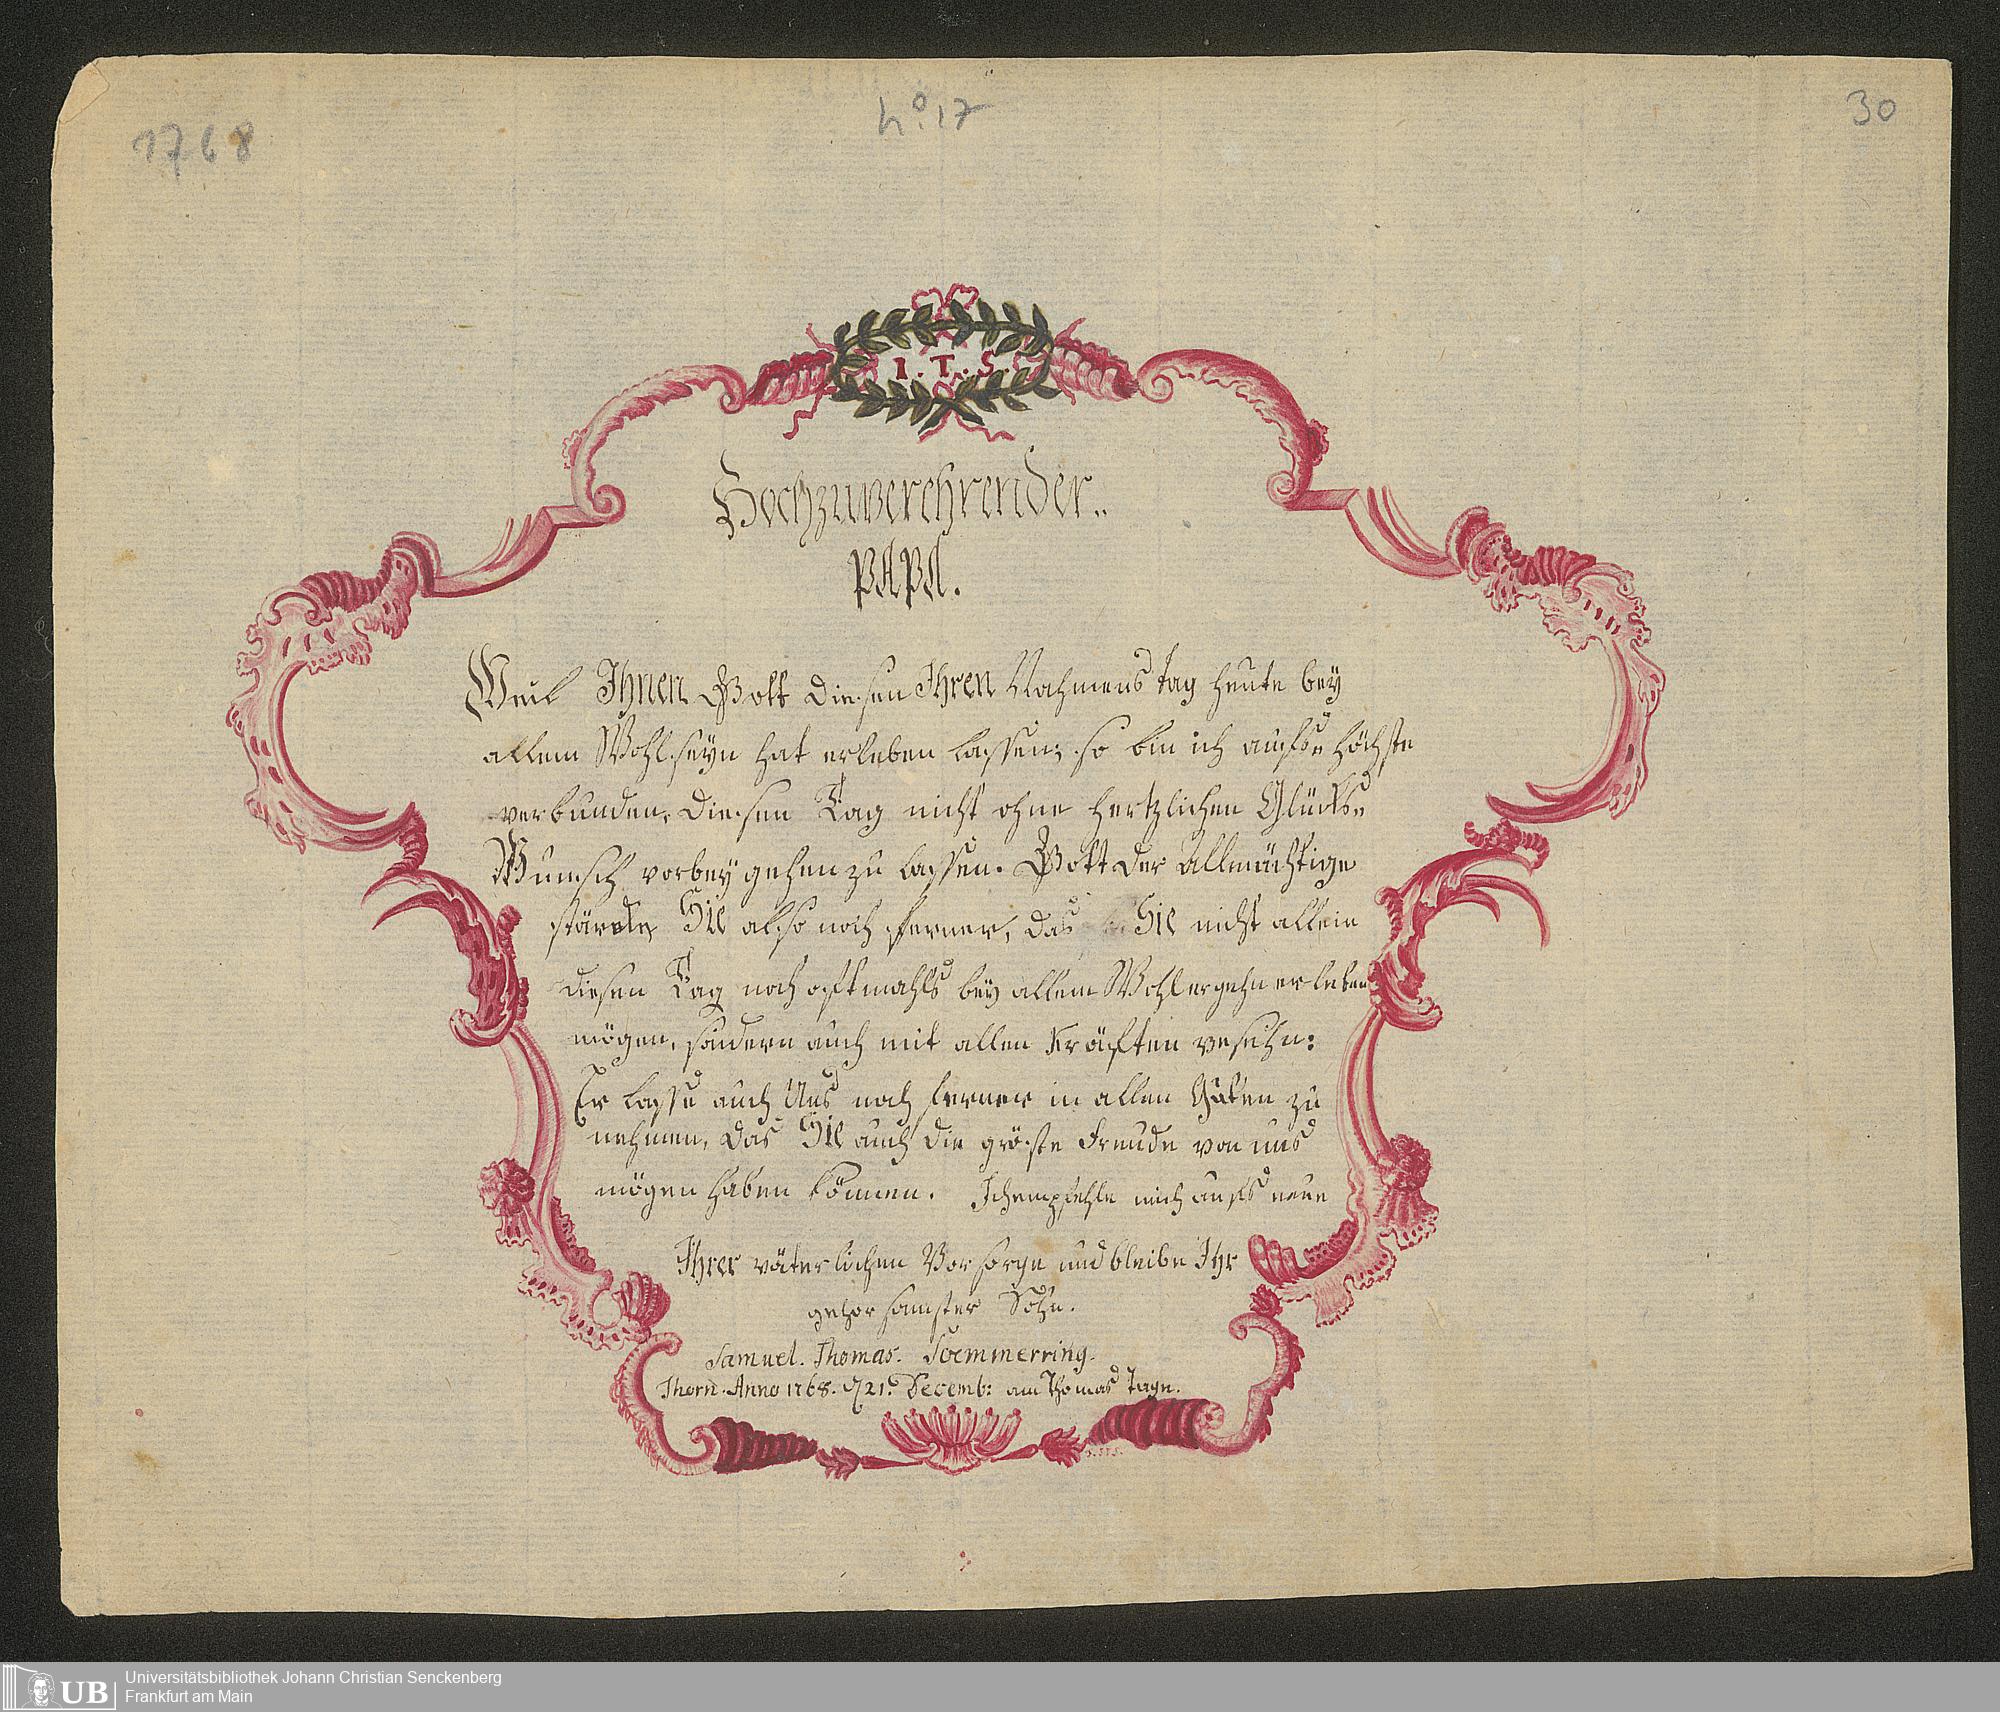 1768
No. 17
30
I. T. S.
Hochzuverehrender..
PAPA.
Weil Ihnen Gott diesen Ihren Nahmens Tag heute bey
allem Wohlseyn hat erleben lassen; so bin ich aufs höchste
verbunden, diesen Tag nicht ohne hertzlichen Glücks=
Wunsch vorbey gehen zu lassen. Gott der Allmächtige
stärcke Sie also noch ferner, das Sie nicht allein
diesen Tag noch oftmahls bey allem Wohlergehn erleben
mögen, sondern auch mit allen Kräften
Er lasse auch Uns noch ferner in allen Guten zu
nehmen, das Sie auch die gröste Freude von uns
mögen haben können. Ich empfehle mich aufs neue
Ihrer väterlichen Vorsorge und bleibe Ihr
gehorsamster Sohn.
Samuel. Thomas. Soemmerring.
Thorn. Anno 1768. 21. Decemb: am Thomas Tage.
Universitätsbibliothek Johann Christian Senckenberg
Frankfurt am Main
UB